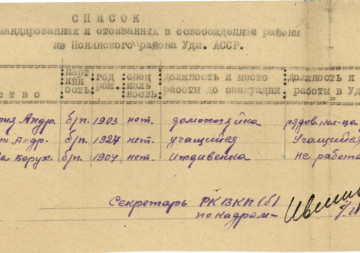 СПИСОК
командированных и отозванных в освобожденные районы
из Понинского района Удм. АССР.
парт ийн ость: год рож. спец иаль ность: должность и место работы до эвакуации должность и работы в Уд
ство
Андр. б/п. 1903 нет. домохозяйка
Андр. б/п. 1927 нет. учащийся Учащийся
Борух. б/п. 1904 нет. Иждивенка не работа
Секретарь РКВКП(б)
по кадрам—